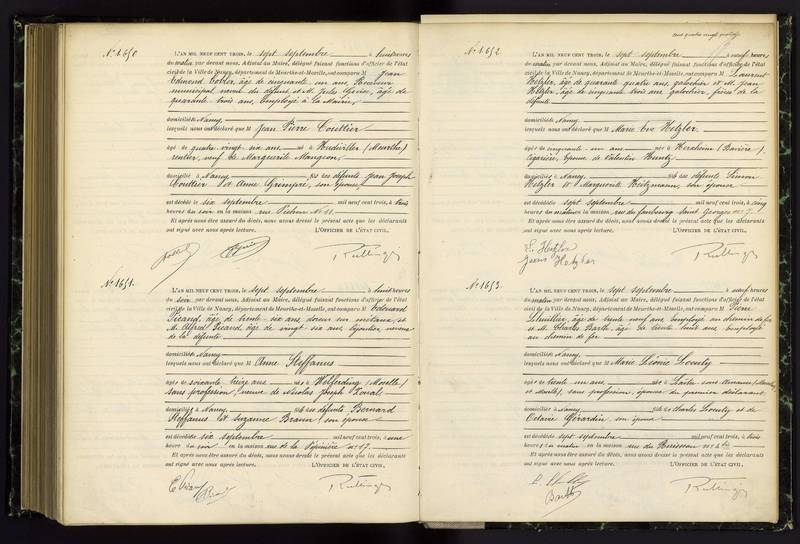 N° 1.650.
L'AN MIL NEUF CENT TROIS, le sept septembre à huit heures
du matin par devant nous, Adjoint au Maire, délégué faisant fonctions d'officier de l'état
civil de la Ville de Nancy, département de Meurthe-et-Moselle, ont comparu M Jean
Edmond âgé de cinquante un ans, Receveur
municipal, neveu du défunt et M. Jules âgé de
quarante trois ans, Employé à la Mairie,
domiciliés à Nancy
lesquels nous ont déclaré que M Jean Pierre Couttier
âgé de quatre vingt six ans né à Hudiviller (Meurthe)
rentier, veuf de Marguerite Mangeon,
domicilié à Nancy fils des défunts Jean Joseph
Couttier et Anne Grimpré, son épouse
est décédé le six septembre mil neuf cent trois, à trois
heures du soir en la maison rue Pichon N° 11.
Et après nous être assuré du décès, nous avons dressé le présent acte que les déclarants
ont signé avec nous après lecture. L'OFFICIER DE L'ÉTAT CIVIL,
N° 1651.
L'AN MIL NEUF CENT TROIS, le sept septembre à huit heures
du soir, par devant nous, Adjoint au Maire, délégué faisant fonctions d'officier de l'état
civil de la Ville de Nancy, département de Meurthe-et-Moselle, ont comparu M Edouard
Picard, âgé de trente-six ans, doreur sur métaux, et
M. Alfred Picard, âgé de vingt-six ans, bijoutier, neveux
de la défunte
domiciliés à Nancy
lesquels nous ont déclaré que M Anne Steffanus
âgée de soixante treize ans née à Holferding (Moselle)
sans profession, veuve de Nicolas Joseph
domiciliée à Nancy fille des défunts Bernard
Steffanus et Suzanne Braun, son épouse
est décédée six septembre mil neuf cent trois, à une
heure du soir en la maison rue de la Pépinière n° 17
Et après nous être assuré du décès, nous avons dressé le présent acte que les déclarants
ont signé avec nous après lecture. L'OFFICIER DE L'ÉTAT CIVIL,
N° 1.652.
L'AN MIL NEUF CENT TROIS, le sept septembre à neuf heures
du matin par devant nous, Adjoint au Maire, délégué faisant fonctions d'officier de l'état
civil de la Ville de Nancy, département de Meurthe-et-Moselle, ont comparu M Laurent
Hetzler, âgé de quarante quatre ans, galochier et M. Jean
Hetzler, âgé de cinquante trois ans galochier, frères de la
défunte
domiciliés à Nancy
lesquels nous ont déclaré que M Marie Eva Hetzler
âgée de cinquante un ans née à Herxheim (Bavière)
cigarière, épouse de Valentin Kuntz
domiciliée à Nancy fille des défunts Simon
Hetzler et Marguerite Heitzmann, son épouse
est décédée sept septembre mil neuf cent trois, à cinq
heures du matin en la maison rue du faubourg Saint Georges n° 7
Et après nous être assuré du décès, nous avons dressé le présent acte que les déclarants
ont signé avec nous après lecture. L'OFFICIER DE L'ÉTAT CIVIL,
L. Hetzler
Jean Hetzler
N° 1653.
L'AN MIL NEUF CENT TROIS, le sept septembre à neuf heures
du matin par devant nous, Adjoint au Maire, délégué faisant fonctions d'officier de l'état
civil de la Ville de Nancy, département de Meurthe-et-Moselle, ont comparu M Pierre
Lhuillier, âgé de trente neuf ans, employé au chemin de fer
et M. Charles Barth, âgé de trente huit ans, employé
au chemin de fer
domiciliés à Nancy
lesquels nous ont déclaré que M Marie Léonie
âgée de trente un ans née à Laître sous Amance (Meurthe
et Moselle), sans profession, épouse du premier déclarant
domiciliée à Nancy fille de Charles et de
Octavie Gérardin, son épouse
est décédée sept septembre mil neuf cent trois, à trois
heures du matin en la maison rue du
Et après nous être assuré du décès, nous avons dressé le présent acte que les déclarants
ont signé avec nous après lecture. L'OFFICIER DE L'ÉTAT CIVIL,
Barth